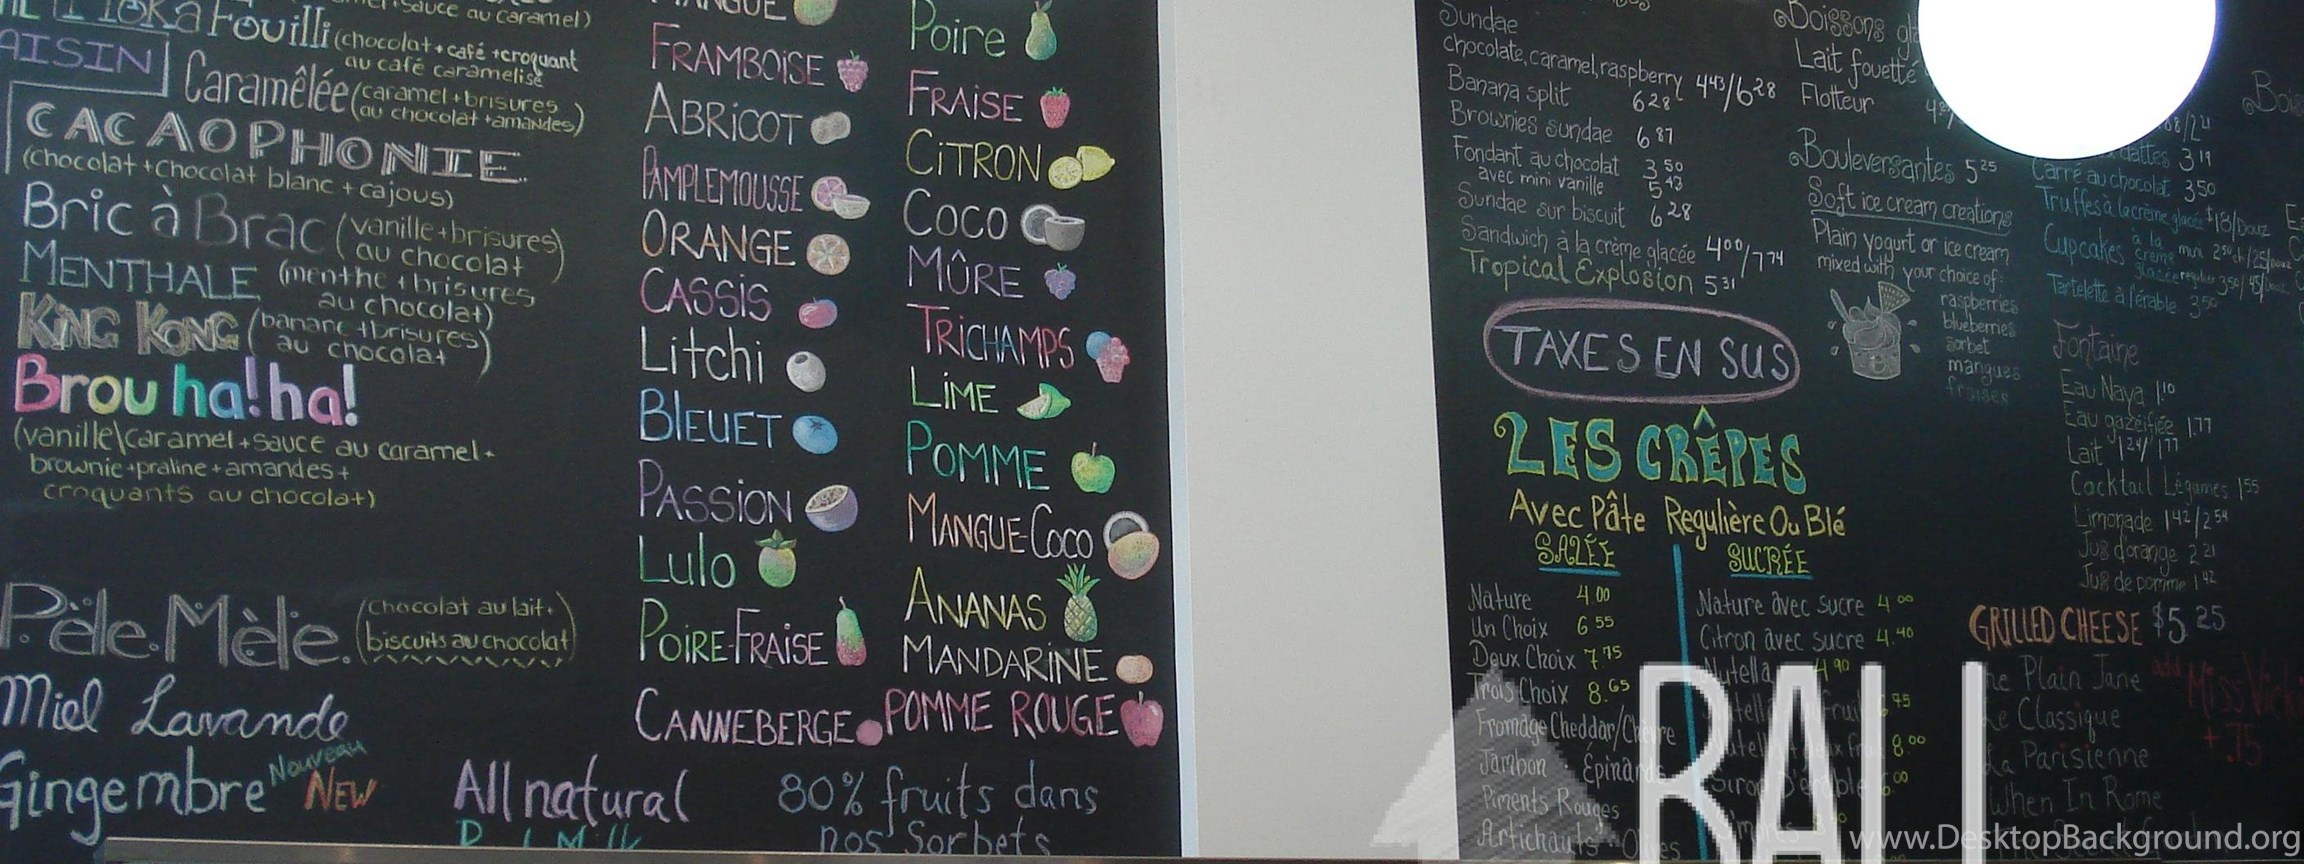 sauce au caramel)
Moka Fouilli (chocolat + café + croquant
au café caramelisé
AISIN
Caramêlée (caramel + brisures
au chocolat + amandes)
CACAOPHONIE
(chocolat + chocolat blanc + cajous)
Bric à Brac (vanille + brisures)
au chocolat
MENTHALE (menthe + brisures
au chocolat)
KING KONG (banane + brisures)
au chocolat
Brou ha! ha!
(vanille\caramel + sauce au caramel +
brownie + praline + amandes +
croquants au chocolat)
Pèle.Mèle. (chocolat au lait.
biscuits au chocolat)
Miel Lavande
Gingembre Nouveau
NEW
MANGUE
FRAMBOISE
ABRICOT
PAMPLEMOUSSE
ORANGE
CASSIS
Litchi
BLEUET
PASSION
Lulo
POIRE-FRAISE
CANNEBERGE
All natural
Poire
FRAISE
CITRON
COCO
MÛRE
TRICHAMPS
LIME
POMME
MANGUE-COCO
ANANAS
MANDARINE
POMME ROUGE
80% fruits dans
nos sorbets
Sundae
chocolate, caramel, raspberry 4.43/6.28
Banana split 6.28
Brownies sundae 6.87
Fondant au chocolat 3.50
avec mini vanille 5.43
Sundae sur biscuit 6.28
Sandwich à la crème glacée 4.00/7.74
Tropical Explosion 5.31
TAXES EN SUS
LES CRÊPES
Avec Pâte Regulière Ou Blé
SALÉE
Nature 4.00
Un Choix 6.55
Deux Choix 7.75
Trois Choix 8.65
Fromage Cheddar/Chèvre
Jambon Épinards
Piments Rouges
Artichauts Olives
SUCRÉE
Nature avec sucre 4.00
Citron avec sucre 4.40
Nutella 4.90
8.00
Boissons
Lait fouetté
Flotteur
Bouleversantes 5.25
Soft ice cream creations
Plain yogurt or ice cream
mixed with your choice of:
raspberries
blueberries
sorbet
mangues
fraises
dattes 3.19
Carré au chocolat 3.50
Truffes à la crème glacée $18/Douz
Cupcakes à la crème glacée
Tartelette à l'érable 3.50
Fontaine
Eau Naya 1.10
Eau gazéifiée 1.77
Lait 1.24/1.77
Cocktail Légumes 1.55
Limonade 1.42/2.54
Jus d'orange 2.21
Jus de pomme 1.42
GRILLED CHEESE $5.25
The Plain Jane
Le Classique
La Parisienne
When In Rome
add Miss Vick
+.75
RALI
www.DesktopBackground.org